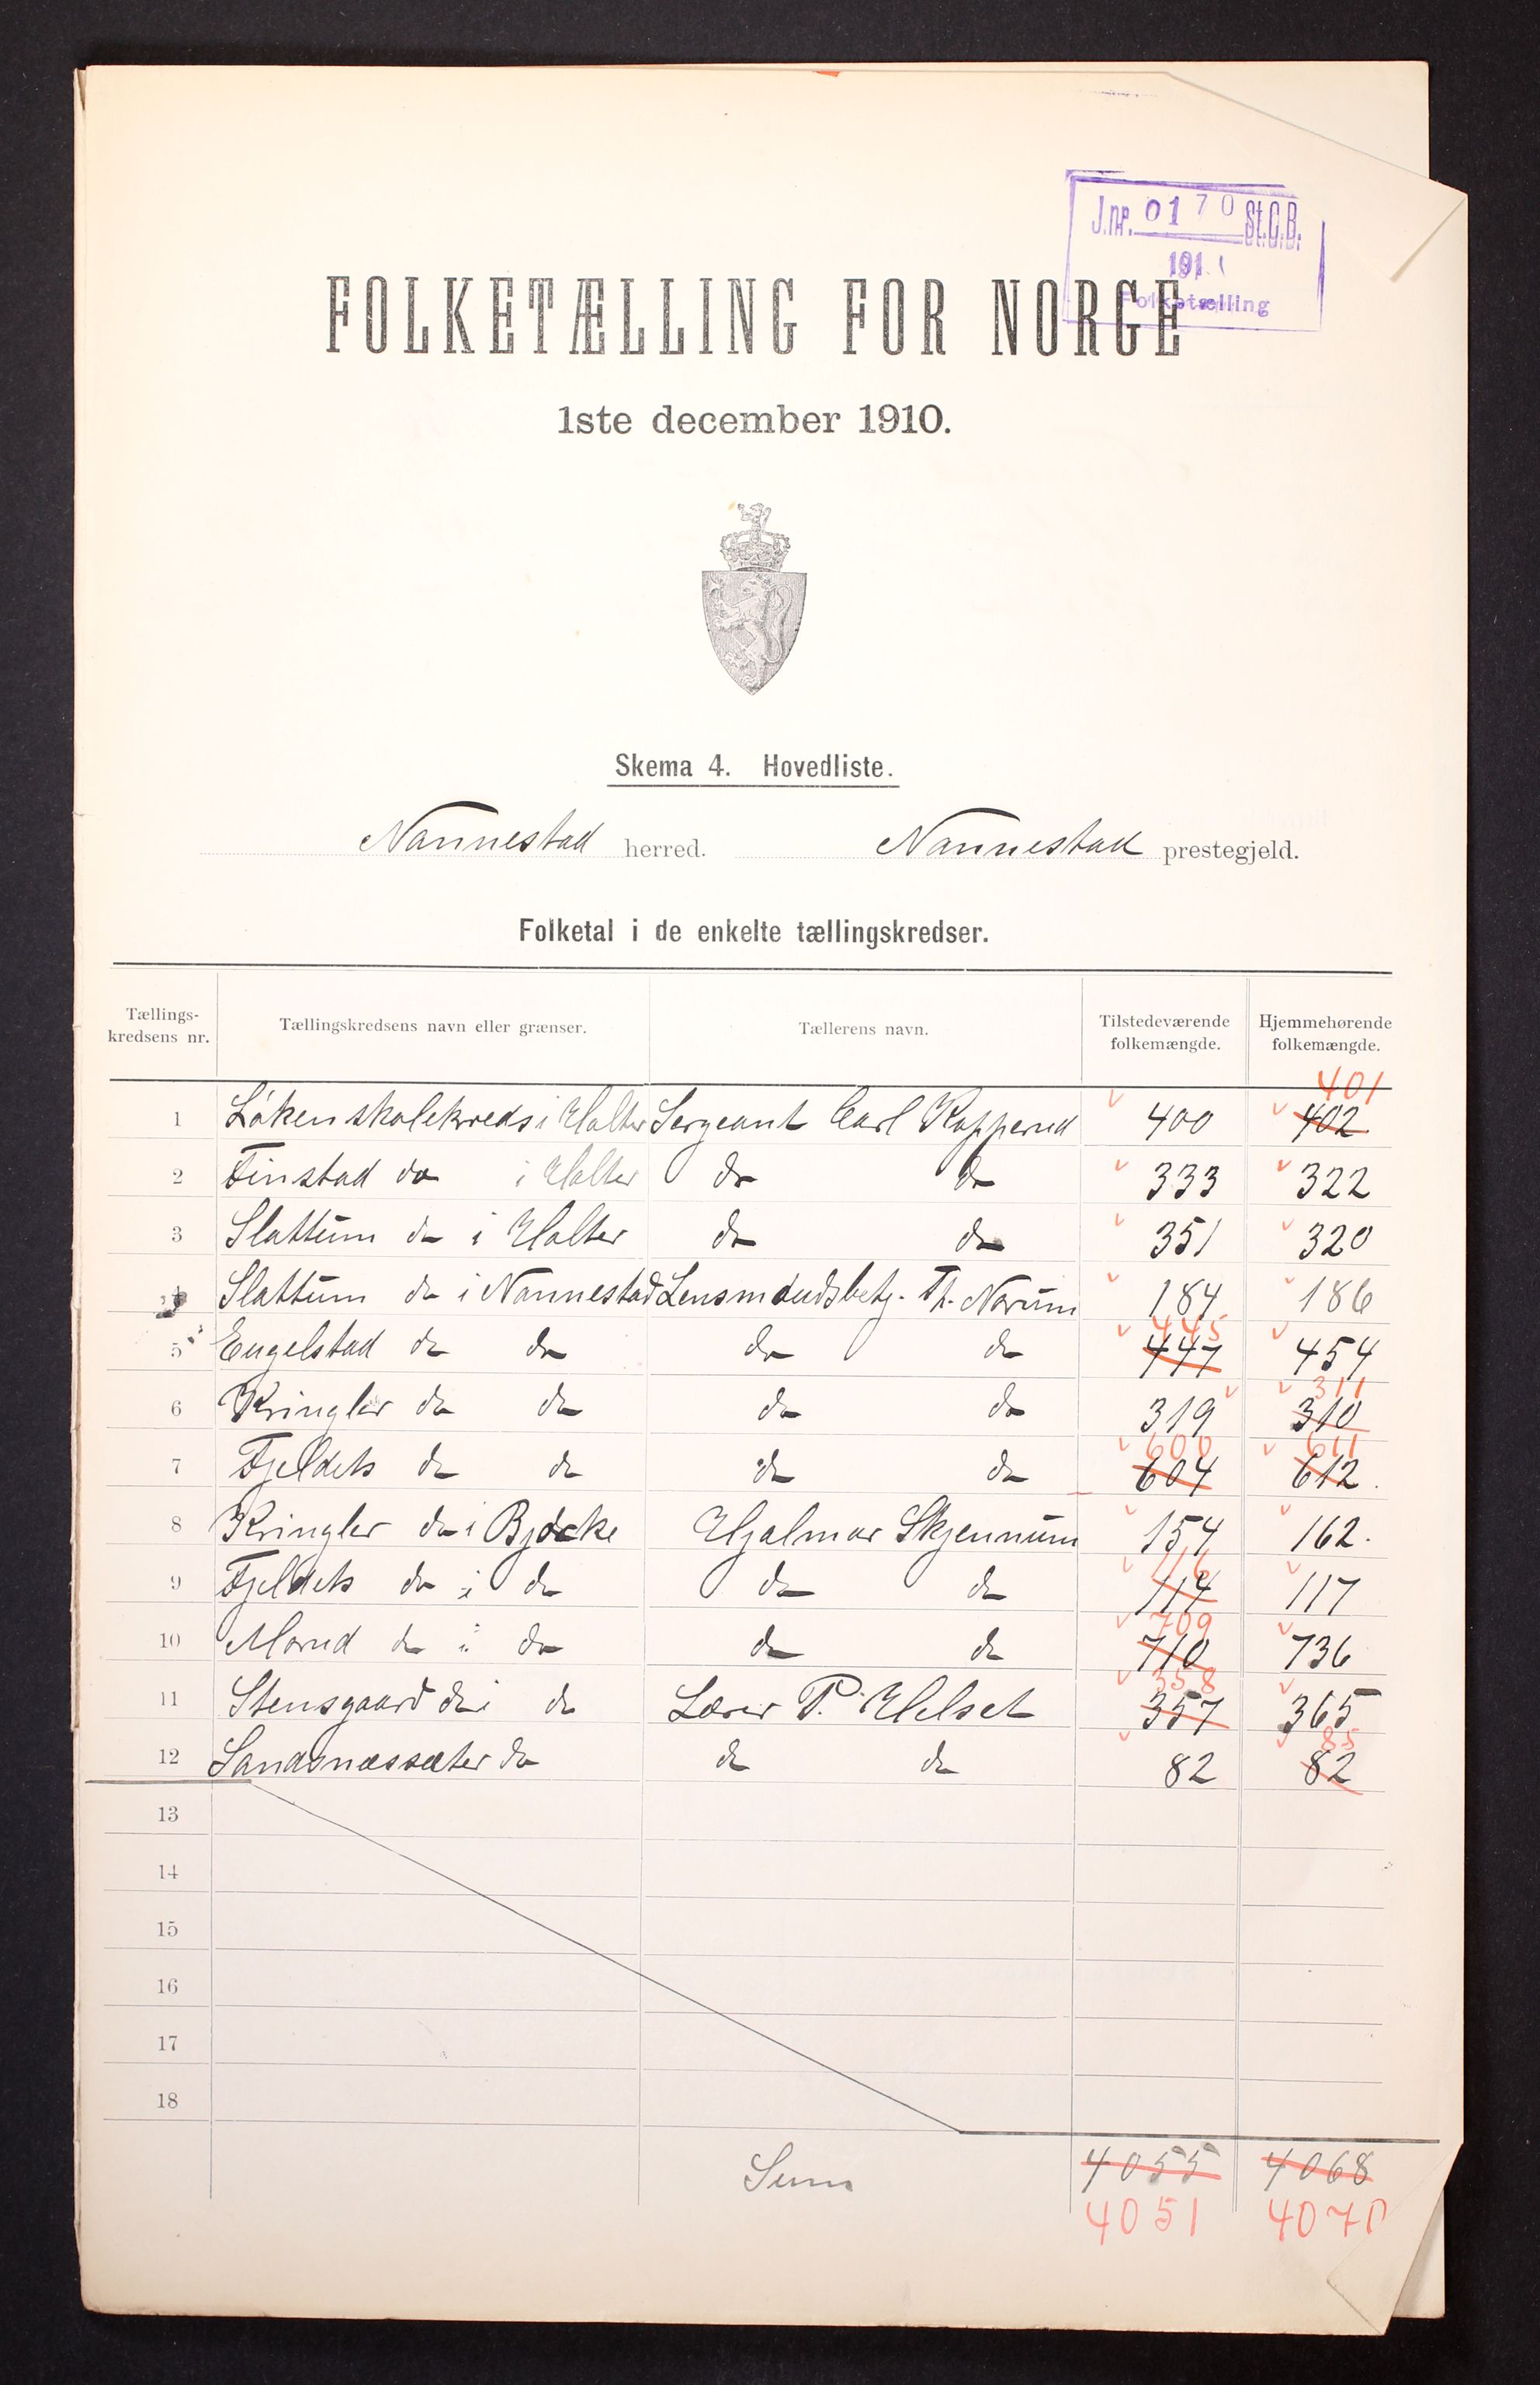 J.nr. 0170 St.C.B.
191
Folketælling
FOLKETÆLLING FOR NORGE
1ste december 1910.
Skema 4. Hovedliste.
Nannestad herred. Nannestad prestegjeld.
Folketal i de enkelte tællingskredser.
Tællings-kredsens nr. Tællingskredsens navn eller grænser. Tællerens navn. Tilstedeværende folkemængde. Hjemmehørende folkemængde.
401
1 Løken skolekreds i Holter Sergeant Carl Kopperud 400 402
2 Finstad do i Holter do do 333 322
3 Slattum do i Holter do do 351 320
4 Slattum do i Nannestad Lensmandsbetj. Th. Norum 184 186
445
5 Engelstad do do do do 447 454
311
6 Kringler do do do do 319 310
600 611
7 Fjeldets do do do do 604 612
8 Kringler do i Bjørke Hjalmar Skjennum 154 162
116
9 Fjeldets do i do do do 114 117
709
10 Morud do i do do do 710 736
358
11 Stensgaard do i do Lærer P. Helset 357 365
85
12 Sandsnæssæter do do do 82 82
13
14
15
16
17
18
Sum 4055 4068
4051 4070